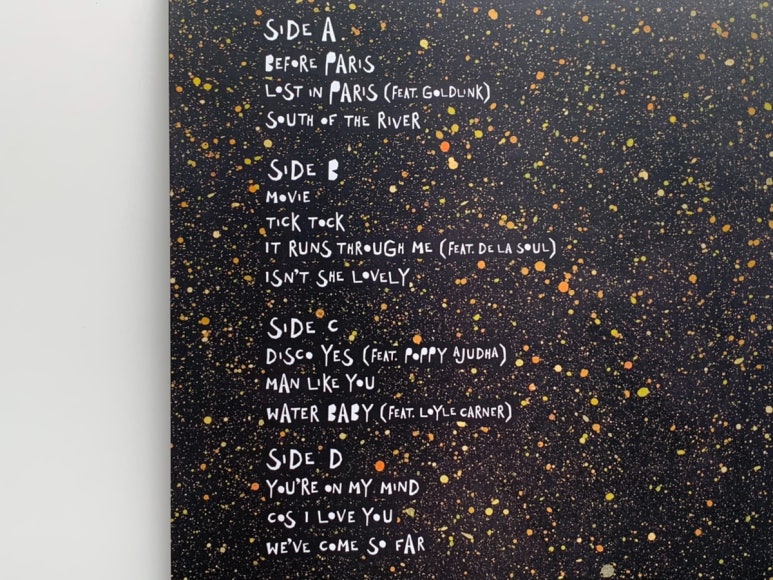 SIDE A
BEFORE PARIS
LOST IN PARIS (FEAT. GOLDLINK)
SOUTH OF THE RIVER
SIDE B
MOVIE
TICK TOCK
IT RUNS THROUGH ME (FEAT. DE LA SOUL)
ISN'T SHE LOVELY
SIDE C
DISCO YES (FEAT. POPPY AJUDHA)
MAN LIKE YOU
WATER BABY (FEAT. LOYLE CARNER)
SIDE D
YOU'RE ON MY MIND
COS I LOVE YOU
WE'VE COME SO FAR